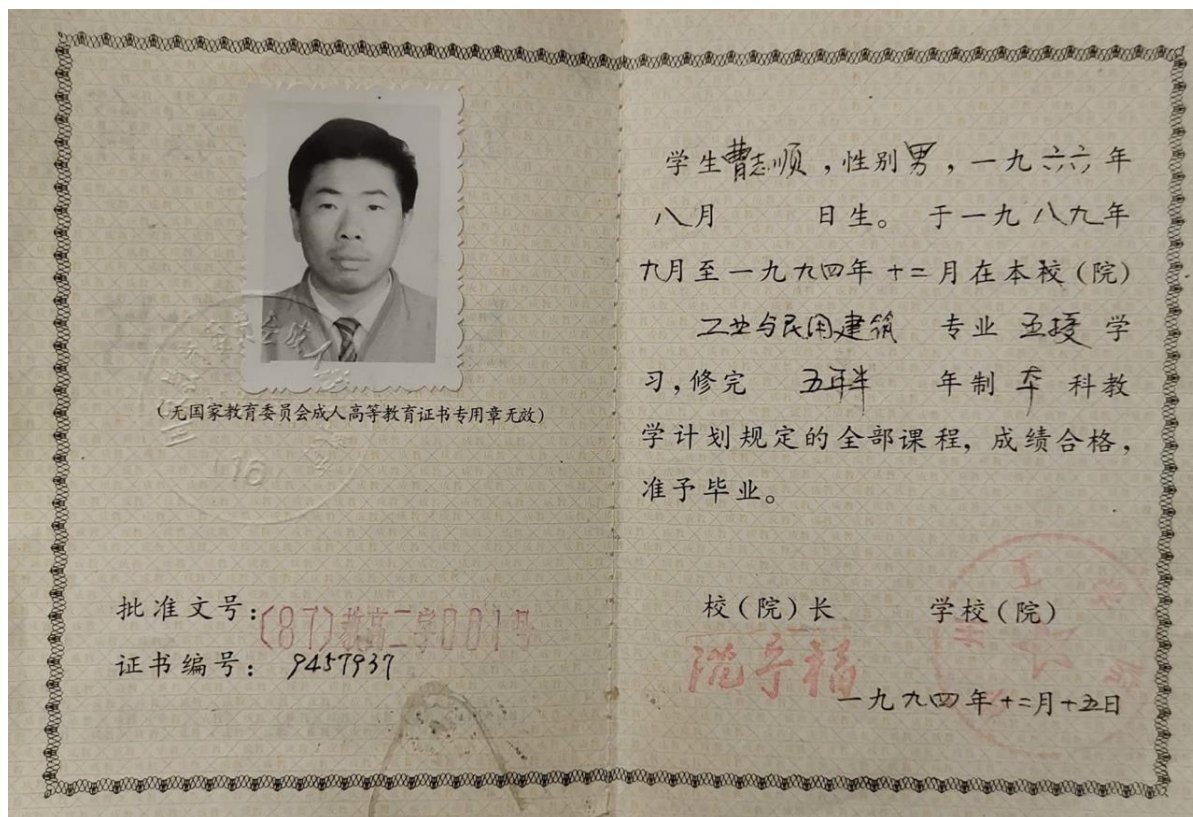 (无国家教育委员会成人高等教育证书专用章无效)
16
批准文号:(87)教高二字001号
证书编号: 9457937
学生曹志顺,性别男,一九六六年
八月 日生。于一九八九年
九月至一九九四年十二月在本校(院)
工业与民用建筑 专业 函授 学
习,修完 五年半 年制 本 科教
学计划规定的全部课程,成绩合格,
准予毕业。
校(院)长 学校(院)
一九九四年十二月十五日